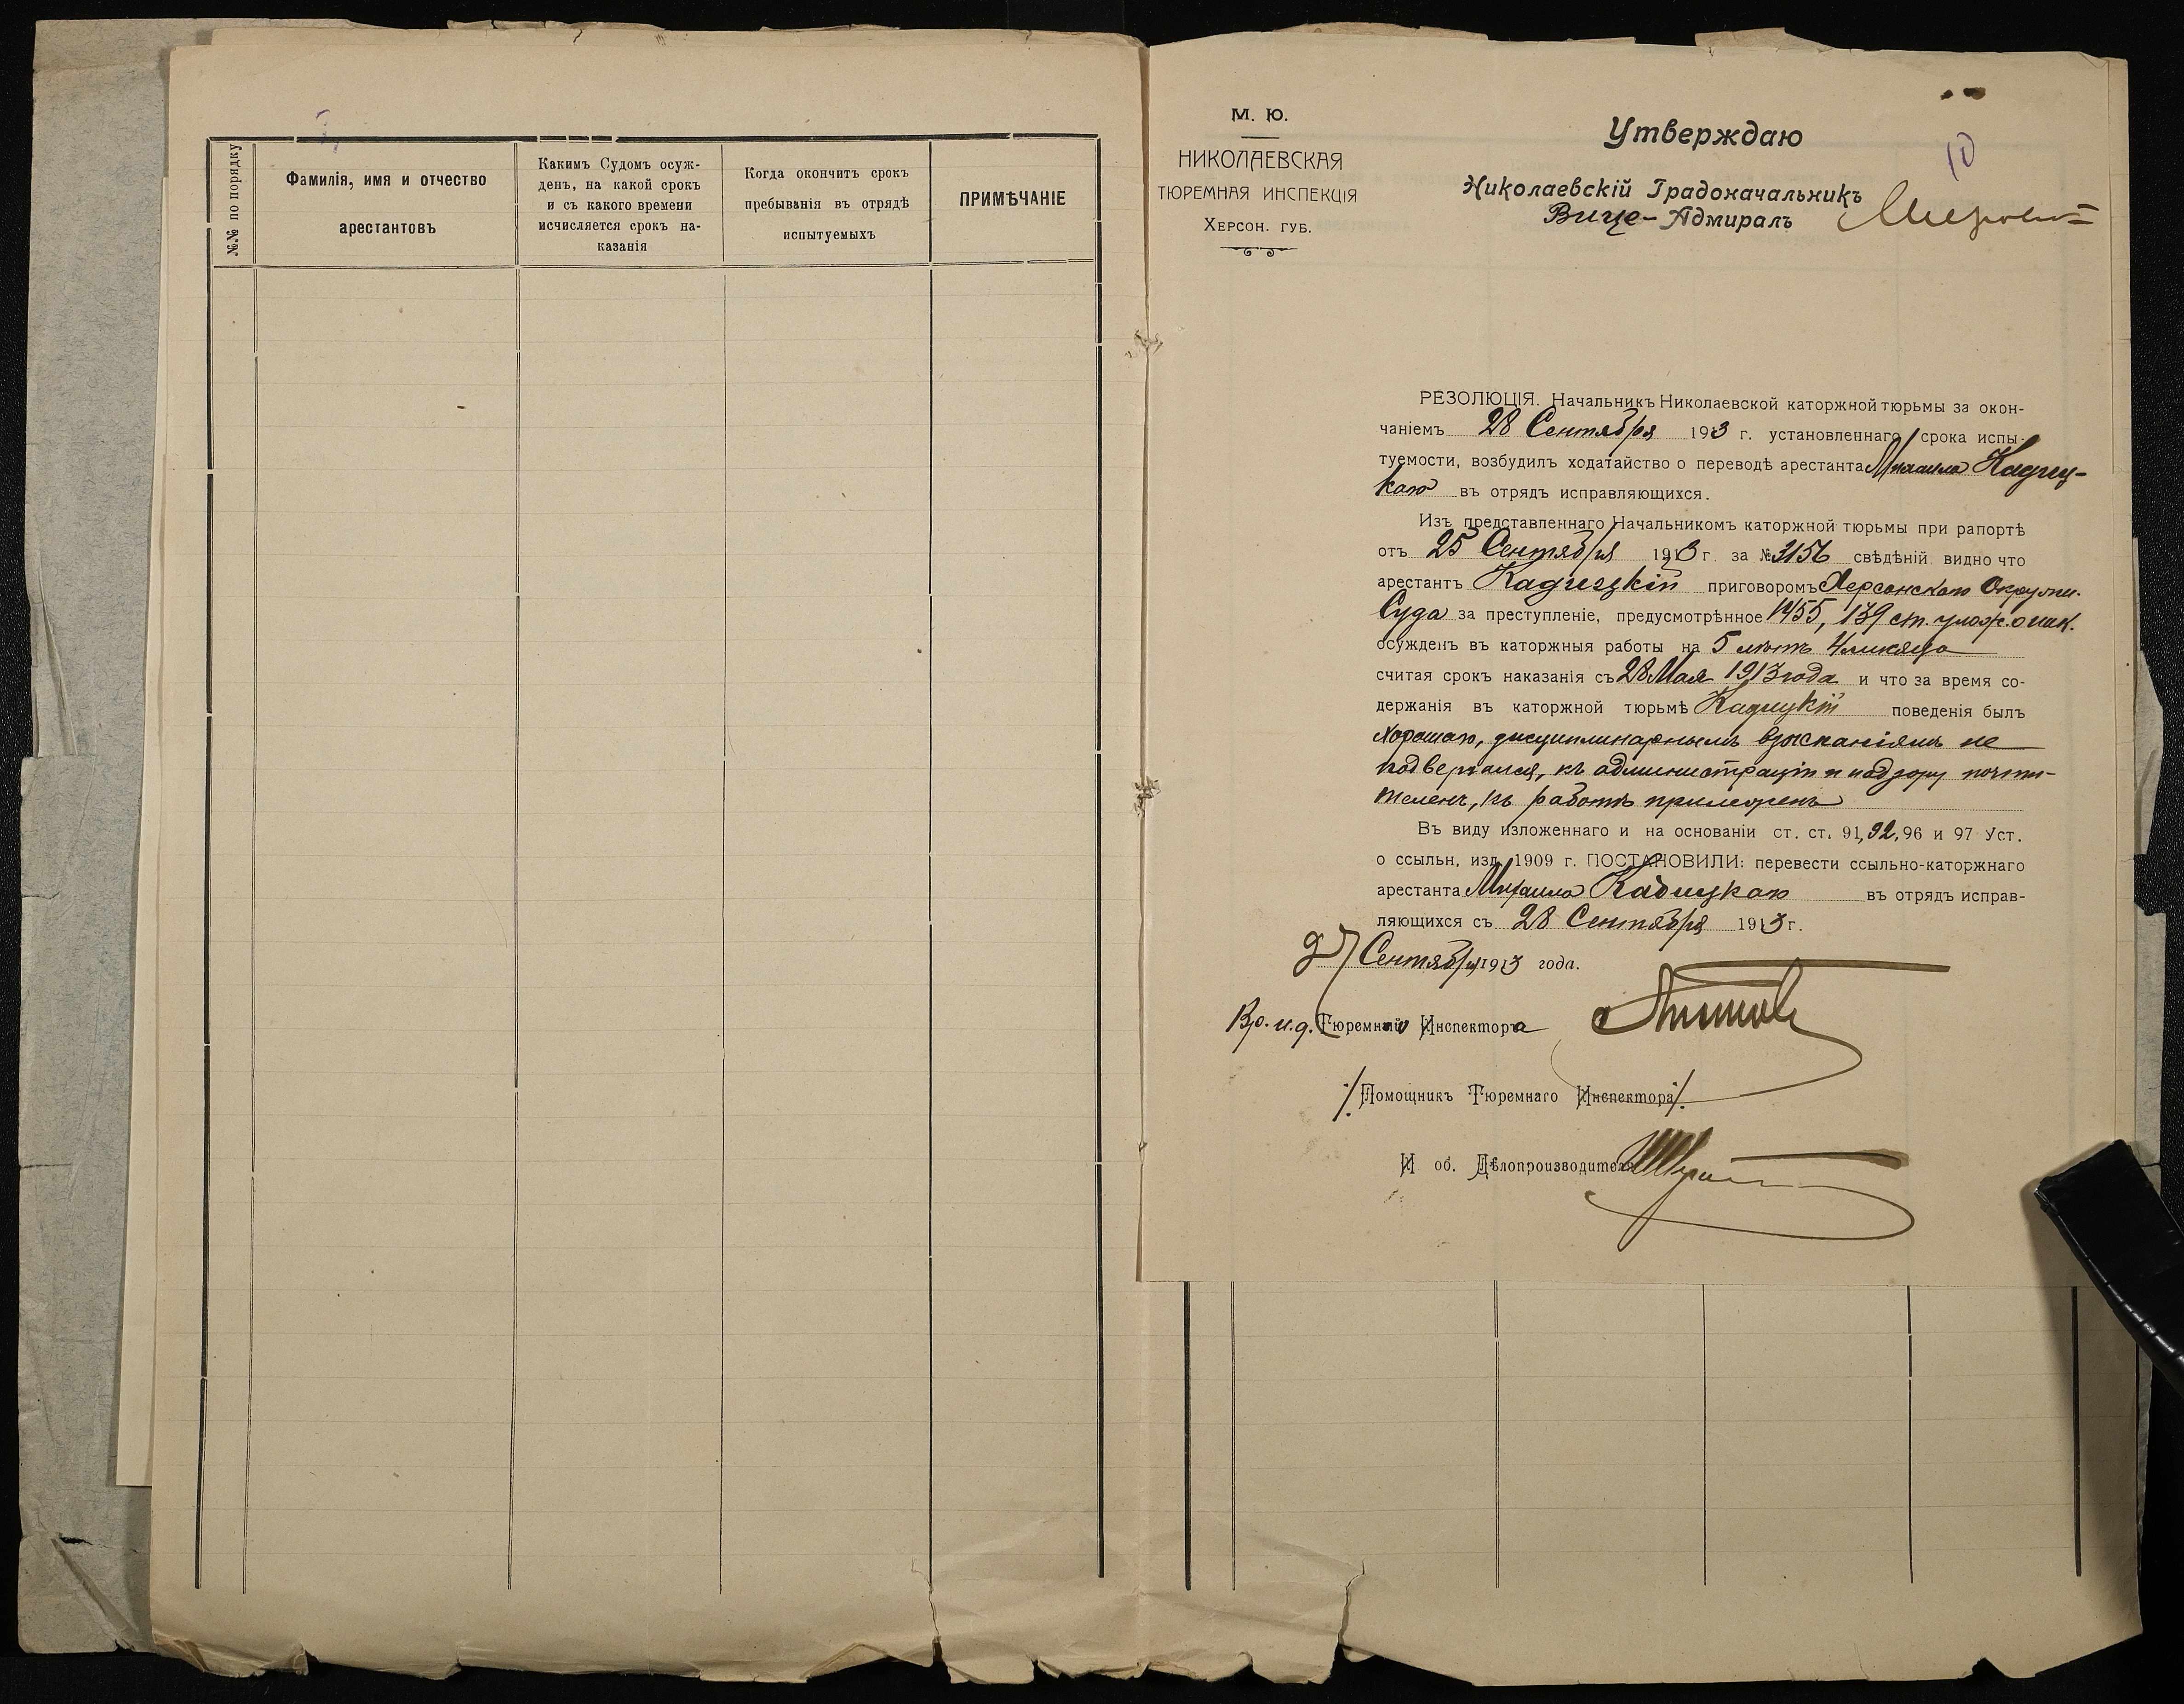 №№ по порядку
Фамилія, имя и отчество
арестантовъ
Какимъ Судомъ осуж-
денъ, на какой срокъ
и съ какого времени
исчисляется срокъ на-
казанія
Когда окончитъ срокъ
пребыванія въ отрядѣ
испытуемыхъ
ПРИМѢЧАНІЕ
М. Ю.
НИКОЛАЕВСКАЯ
ТЮРЕМНАЯ ИНСПЕКЦІЯ
ХЕРСОН. ГУБ.
10
Утверждаю
Николаевскій Градоначальникъ
Вице-Адмиралъ
РЕЗОЛЮЦІЯ. Начальникъ Николаевской каторжной тюрьмы за окон-
чаніемъ 28 Сентября 1913 г. установленнаго срока испы-
туемости, возбудилъ ходатайство о переводѣ арестанта Михаила Кадиц-
каго въ отрядъ исправляющихся.
Изъ представленнаго Начальникомъ каторжной тюрьмы при рапортѣ
отъ 25 Сентября 1913 г. за № 3156 свѣдѣній видно что
арестантъ Кадицкій приговоромъ Херсонскаго Окружн.
Суда за преступленіе, предусмотрѣнное 1455, 139 ст. улож. о нак.
осужденъ въ каторжныя работы на 5 лѣтъ 4 мѣсяца
считая срокъ наказанія съ 28 Мая 1913 года и что за время со-
держанія въ каторжной тюрьмѣ Кадицкій поведенія былъ
хорошаго, дисциплинарнымъ взысканіямъ не
подвергался, къ администраціи и надзору почти-
теленъ, къ работѣ прилеженъ
Въ виду изложеннаго и на основаніи ст. ст. 91, 92, 96 и 97 Уст.
о ссыльн. изд. 1909 г. ПОСТАНОВИЛИ: перевести ссыльно-каторжнаго
арестанта Михаила Кадицкаго въ отрядъ исправ-
ляющихся съ 28 Сентября 1913 г.
27 Сентября 1913 года.
Вр. и. д. Тюремнаго Инспектора
Помощникъ Тюремнаго Инспектора
И об. Дѣлопроизводителя